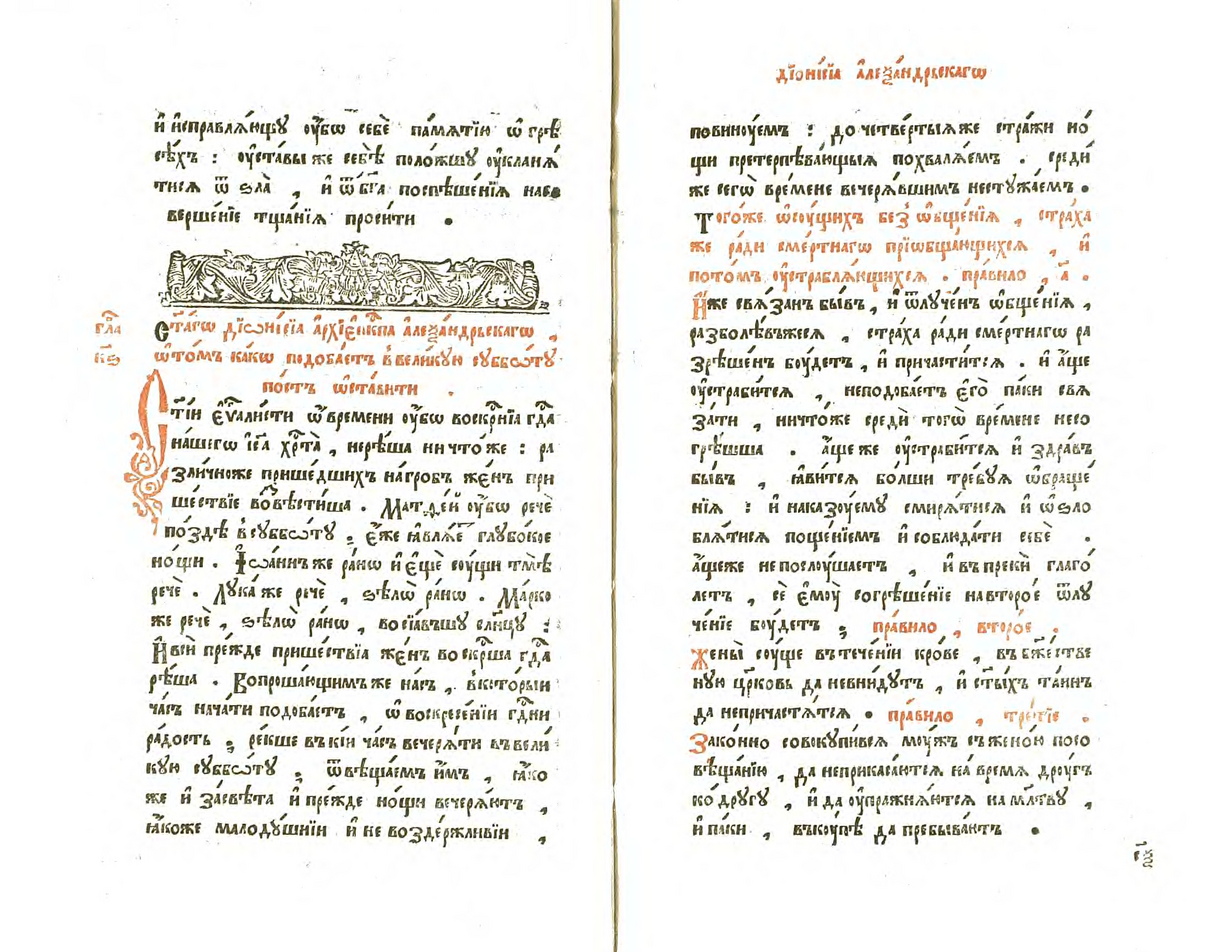 и҆ и҆справлѧ́ющꙋ ᲂу҆́бѡ себѐ па́мѧтїю ѡ҆ грѣ
сѣ́хъ : ᲂу҆ста́вы же себѣ̀ поло́жшꙋ ᲂу҆кланѧ́
тисѧ ѿ ѕла̀ , и҆ ѿ бг҃а поспѣше́нїѧ насо
верше́нїе тща́нїѧ проси́ти .
гла҃
к҃ѕ
Ст҃а́гѡ дїѡни́сїа а҆рхїе҆пкⷭ҇па а҆леѯа́ндрьскагѡ ,
ѡ҆то́мъ ка́кѡ подоба́етъ ввели́кꙋю сꙋббѡ́тꙋ
по́стъ ѡ҆ста́вити .
Ст҃і́и є҆ѵⷢ҇алисти ѡ҆вре́мени ᲂу҆́бѡ воскрⷭ҇нїа гдⷭ҇а
на́шегѡ і҆са хрⷭ҇та̀ , нерѣ́ша ничто́же : ра
зли́чноже прише́дшихъ на́гробъ же́нъ при
ше́ствїе возвѣсти́ша . Матѳе́й ᲂу҆́бѡ речѐ
по́здѣ всꙋббѡ́тꙋ ; є҆́же ꙗ҆влѧ́еⷮ глꙋбо́кое
но́щи . І҆ѡа́ннъ же ра́нѡ и҆ є҆щѐ сꙋ́щи тмѣ̀
речѐ . Лꙋка́ же речѐ , ѕѣлѡ̀ ра́нѡ . Ма́рко
же речѐ , ѕѣлѡ̀ ра́нѡ , восїѧ́вьшꙋ сл҃нцꙋ :
И҆ всѝ пре́жде прише́ствїѧ же́нъ воскрⷭ҇ша гдⷭ҇а
рѣ́ша . Вопроша́ющимъ же на́съ , вкото́рыи
ча́съ нача́ти подоба́етъ , ѡ҆ воскресе́нїи гдⷭ҇ни
ра́дость ; ре́кше въкі́и ча́съ вечерѧ́ти въвели́
кꙋю сꙋббѡ́тꙋ ; ѿвѣща́емъ и҆̀мъ , ꙗ҆́ко
же и҆ засвѣ́та и҆ пре́жде но́щи вечерѧ́ютъ ,
ꙗ҆́коже малодꙋ́шнїи и҆ не возде́ржливїи ,
дїони́сїа а҆леѯа́ндрьскагѡ
повинꙋ́емъ : дочетве́ртыѧже стра́жи но́
щи претерпѣва́ющыѧ похвалѧ́емъ . среди́
же сегѡ̀ вре́мене вечерѧ́вшимъ нестꙋжа́емъ .
Тогѡ́же ѡ҆сꙋ́щихъ без̾ ѡ҆бще́нїѧ , стра́ха
же ра́ди сме́ртнагѡ прїѡбща́ющихсѧ , и҆
пото́мъ ᲂу҆страблѧ́ющихсѧ . пра́вило , а҃ .
И҆́же свѧ́занъ бы́въ , и҆ ѿлꙋче́нъ ѡ҆бще́нїѧ ,
разболѣ́въжесѧ , стра́ха ра́ди сме́ртнагѡ ра
зрѣше́нъ бꙋ́детъ , и҆ причасти́тсѧ . и҆ а҆́ще
ᲂу҆страби́тсѧ , неподоба́етъ є҆го̀ па́ки свѧ
за́ти , ничто́же средѝ тогѡ̀ вре́мене несо
грѣ́шша . а҆́ще же ᲂу҆страби́тсѧ и҆ здра́въ
бы́въ , ꙗ҆ви́тсѧ бо́лши тре́бꙋѧ ѡ҆браще́
нїѧ : и҆ наказꙋ́емꙋ смирѧ́тисѧ и҆ ѡ҆ѕло
блѧ́тисѧ поще́нїемъ и҆ соблюда́ти себѐ .
а҆́щеже непослꙋ́шаетъ , и҆ въпреки́ глаго́
летъ , сѐ є҆мꙋ̀ согрѣше́нїе навторо́е ѿлꙋ
че́нїе бꙋ́детъ ; пра́вило , второ́е .
Жены̀ сꙋ́ще въ тече́нїи кро́ве , въ бж҃естве
нꙋю цр҃ковь да невни́дꙋтъ , и҆ ст҃ы́хъ та́инъ
да непричастѧ́тсѧ . пра́вило , тре́тїе .
Зако́нно совокꙋпи́всѧ мꙋ́жъ съжено́ю посо
вѣща́нїю , да неприкаса́ютсѧ на вре́мѧ дрꙋ́гъ
ко́ дрꙋгꙋ , и҆ да ᲂу҆пражнѧ́ютсѧ на мл҃твꙋ ,
и҆ па́ки , въкꙋ́пѣ да пребыва́ютъ .